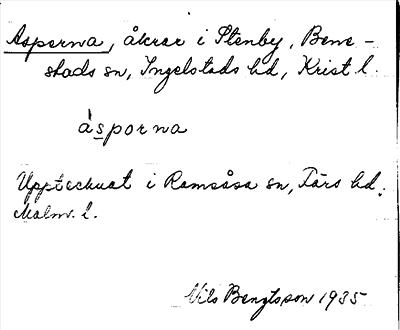 Asperna, åkrar i Stenby, Bene-
stads sn, Ingelstads hd, Krist l.
àsporna
Upptecknat i Ramsåsa sn, Färs hd.
Malm. l.
Nils Bengtsson 1935